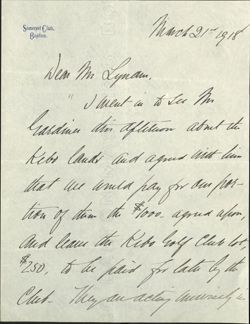 Somerset Club,
Boston.
March 21st 1918
Dear Mr Lynam.
I went in to see Mr
Gardiner this afternoon about the
Kebo lands and agreed with him
that we would pay for our por-
tion of them the $ agreed upon
and leave the Kebo Golf Club lot,
$250, to be paid for later by the
Club. They are acting